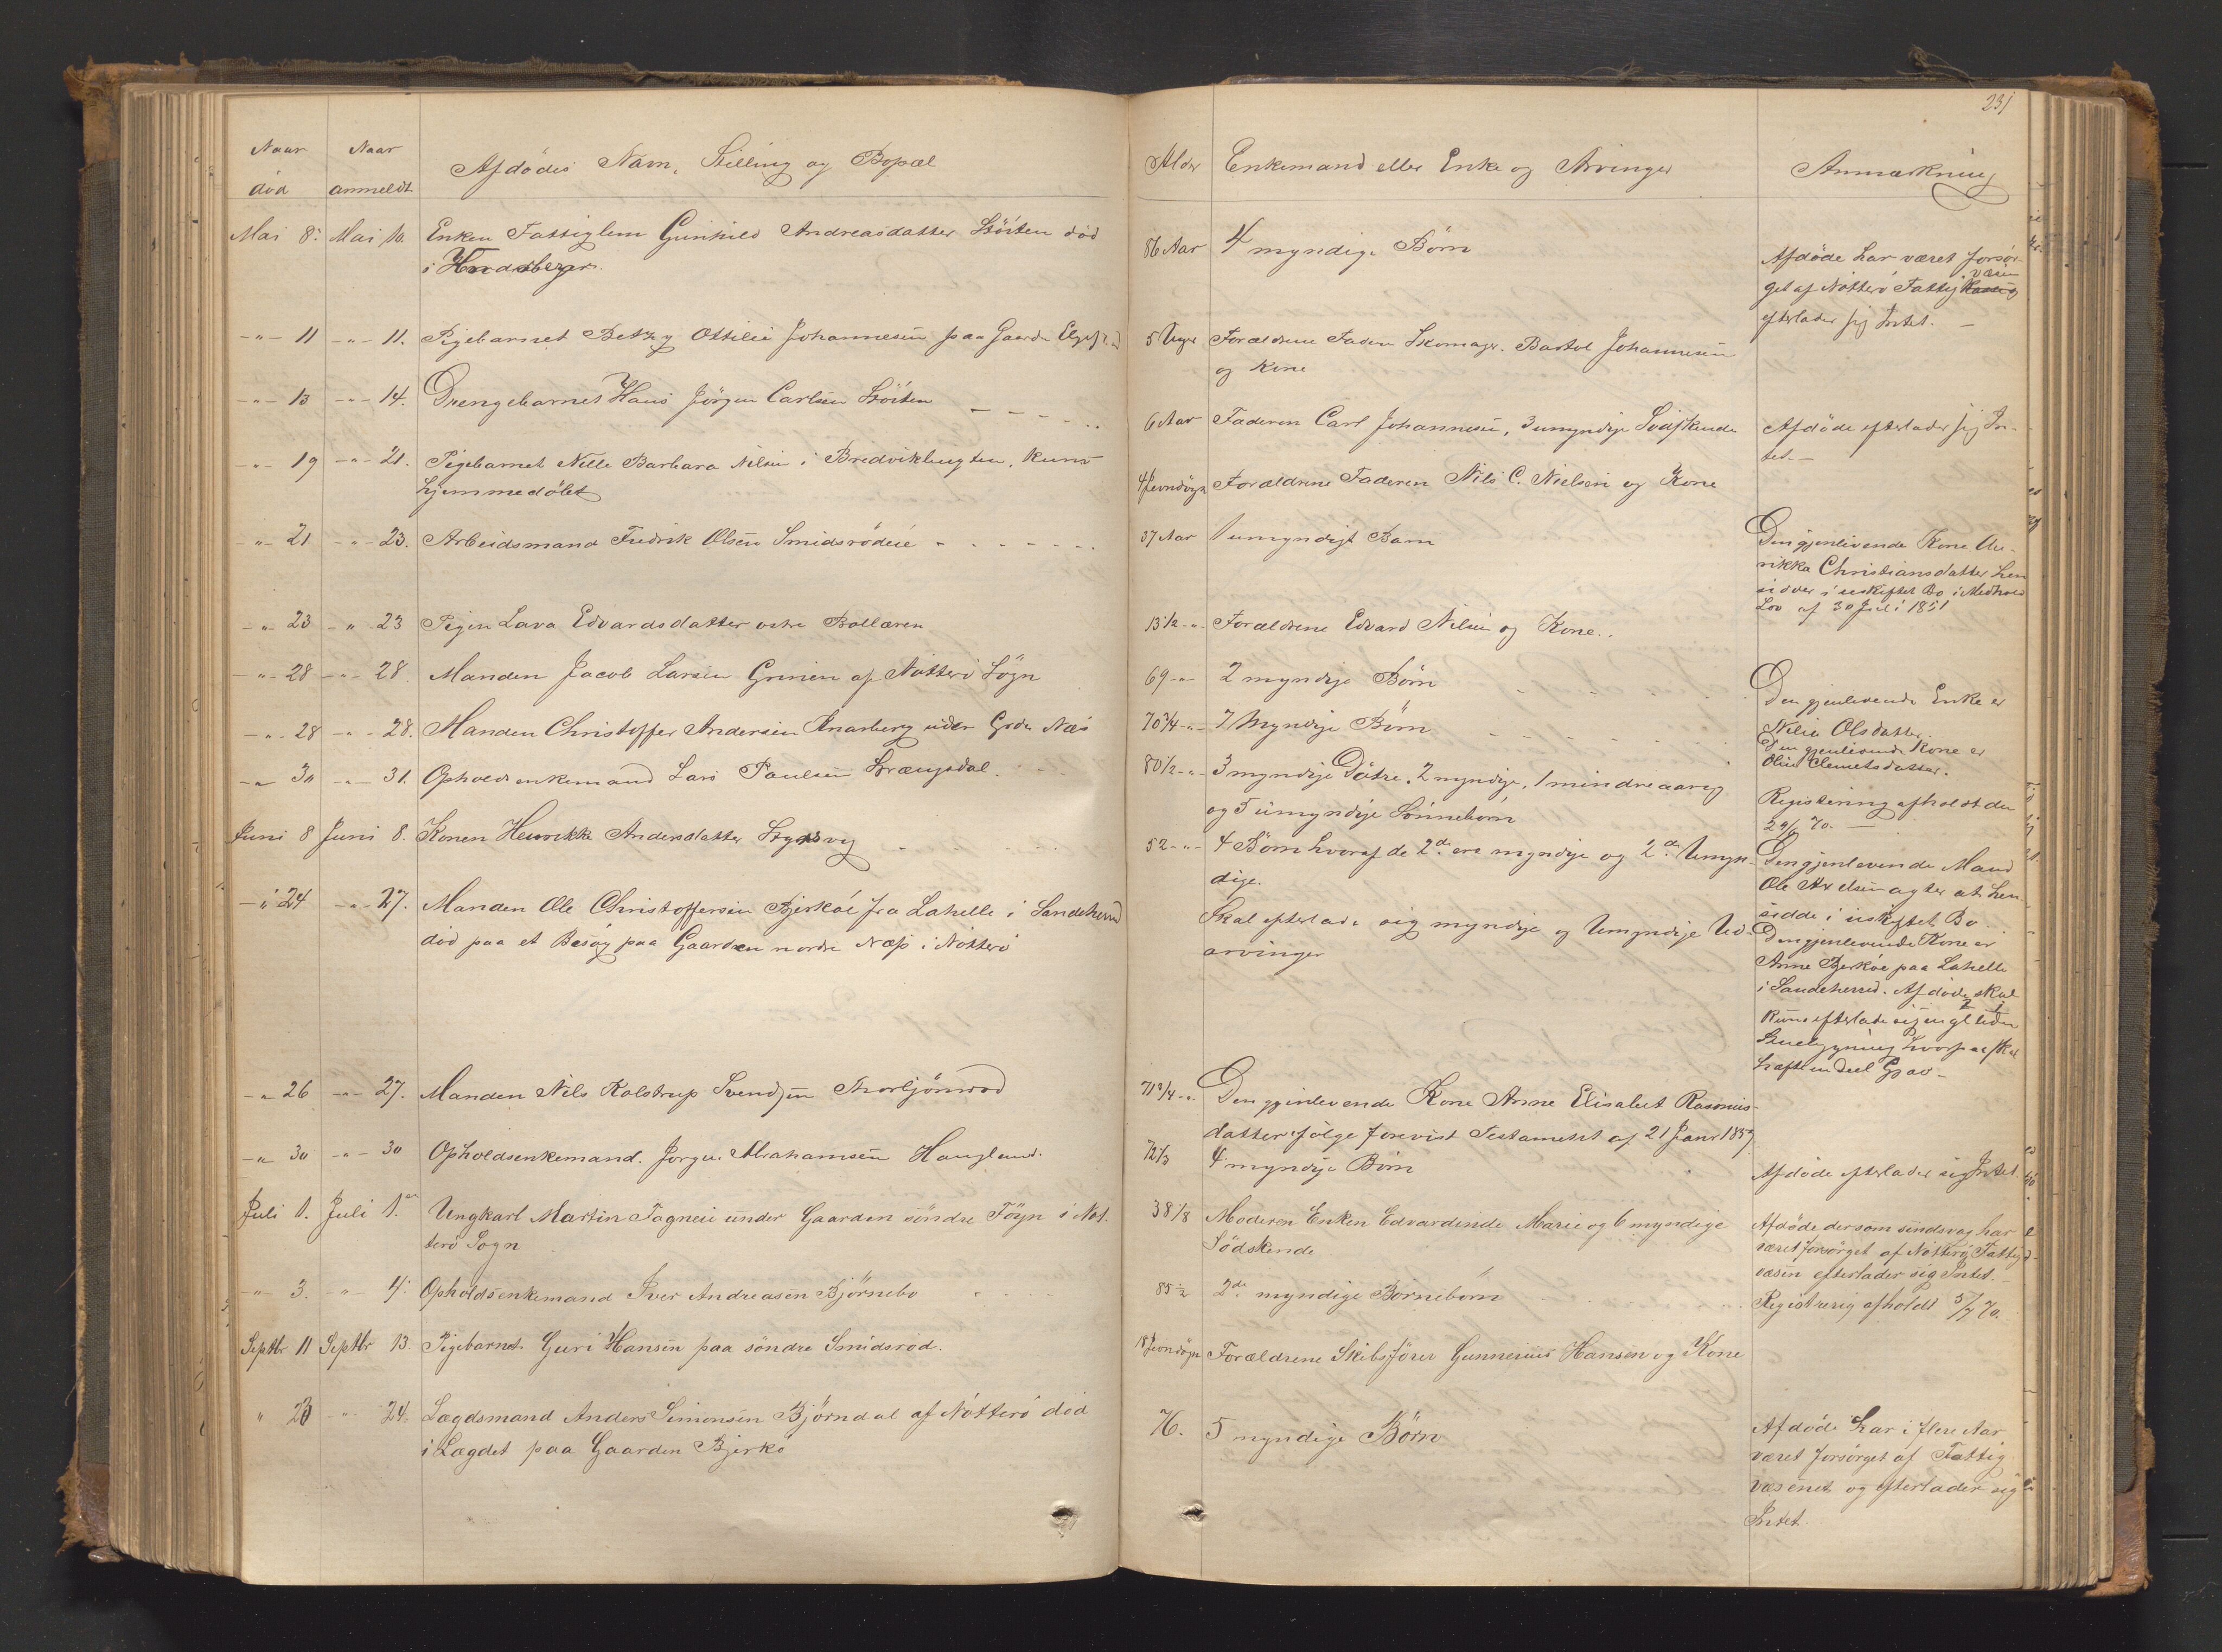 231
Naar død
Naar anmeldt
Afdødes Navn, Stilling og Bopæl
Alder
Enkemand eller Enke og Arvinger
Anmærkning
Mai 8. Mai 10. Enken Fattiglem Gunhild Andreasdatter død
i
86 Aar 4 myndige Børn
Afdøde har været forsør-
get af Nötterö Fattigvæsen
efterlader sig Intet. —
-"- 11 -"- 11. Pigebarnet Betzy Ottilie Johannesen paa Gaarden
5 Uger Forældrene Faderen Skomager Bartol Johannesen
og Kone
-"- 13 -"- 14. Drengebarnet Hans Jörgen Carlsen
6 Aar Faderen Carl Johannesen, 3 umyndige Södskende
Afdöde efterlader sig In-
tet. —
-"- 19 -"- 21. Pigebarnet Nille Barbara Nilsen i Bredviklugten, kuns
hjemmedöbt
4 Jevndögn Forældrene Faderen Nils C. Nielsen og Kone
-"- 21 -"- 23. Arbeidsmand Fredrik Olsen Smidsrödeie
37 Aar 1 umyndigt Barn
Den gjenlevende Kone Ul-
rikka Christiansdatter hen
sidder i uskiftet Bo i Medhold
Lov af 30 Juli 1851
-"- 23 -"- 23 Pigen Lava Edvardsdatter østre Bollæren
13 1/2 -"- Forældrene Edvard Nilsen og Kone.
-"- 28 -"- 28. Manden Jacob Larsen Grinien af Nötterö Sogn
69 -"- 2 myndige Börn
Den gjenlevende Enke er
Nilia Olsdatter.
-"- 28 -"- 28. Manden Christoffer Andersen Knarberg under Grdn Næs
70 3/4 -"- 7 Myndige Börn
Den gjenlevende Kone er
Oline Clemetsdatter.
-"- 30 -"- 31. Opholdsenkemand Lars Paulsen Strængsdal.
80 1/2 -"- 3 myndige Dötre, 2 myndige, 1 mindreaarig
og 5 umyndige Sönnebörn
Registering afholdt den
24/6 70. —
Juni 8 Juni 8. Konen Henrikke Andersdatter
52 -"- 4 Börn hvoraf de 2de ere myndige og 2de Umyn-
dige.
Den gjenlevende Mand
Ole Axelsen agter at hen
sidde i uskiftet Bo.
-"- 24 -"- 27. Manden Ole Christoffersen Bjerköe fra Lahelle i Sandeherred
död paa et Besög paa Gaarden nordre Næss i Nötterö
Skal efterlade sig myndige og Umyndige Ud-
arvinger
Den gjenlevende Kone er
Anne Bjerköe paa Lahelle
i Sandeherred. Afdöde skal
kun efterlade sig en gl liden
Stuebygning hvorpaa skal
hæfte en Deel Gjæv —
-"- 26 -"- 27. Manden Nils Kolstrup Svendsen Thorbjönrød
71 3/4 -"- Den gjenlevende Kone Anne Elisabet Rasmus-
datter ifölge forevist Testament af 21 Janr 1857
-"- 30 -"- 30 Opholdsenkemand Jörgen Abrahamsen Haugland.
72 1/3 4 myndige Börn
Afdöde efterlader sig Intet.
Juli 1. Juli 1. Ungkarl Martin under Gaarden söndre Föyn i Nöt-
terö Sogn
38 1/8 Moderen Enken Edvardinde Marie og 6 myndige
Södskende
Afdöde der som sindsvag har
været forsörget af Nötterö Fattig-
væsen efterlader sig Intet. —
-"- 3. -"- 4. Opholdsenkemand Iver Andreasen Björnebo
85 1/2 2de myndige Börnebörn
Registrerig afholdt 5/7 70.
Septbr 11 Septbr 13. Pigebarnet Guri Hansen paa söndre Smidsröd.
18 Jevndögn Forældrene Skibsförer Gunnerius Hansen og Kone
" 23 " 24. Lægdsmand Anders Simonsen Björndal af Nötterö död
i Lægdet paa Gaarden Bjerkö
76. 5 myndige Börn
Afdöde har i flere Aar
været forsörget af Fattig
væsenet og efterlader sig
Intet.